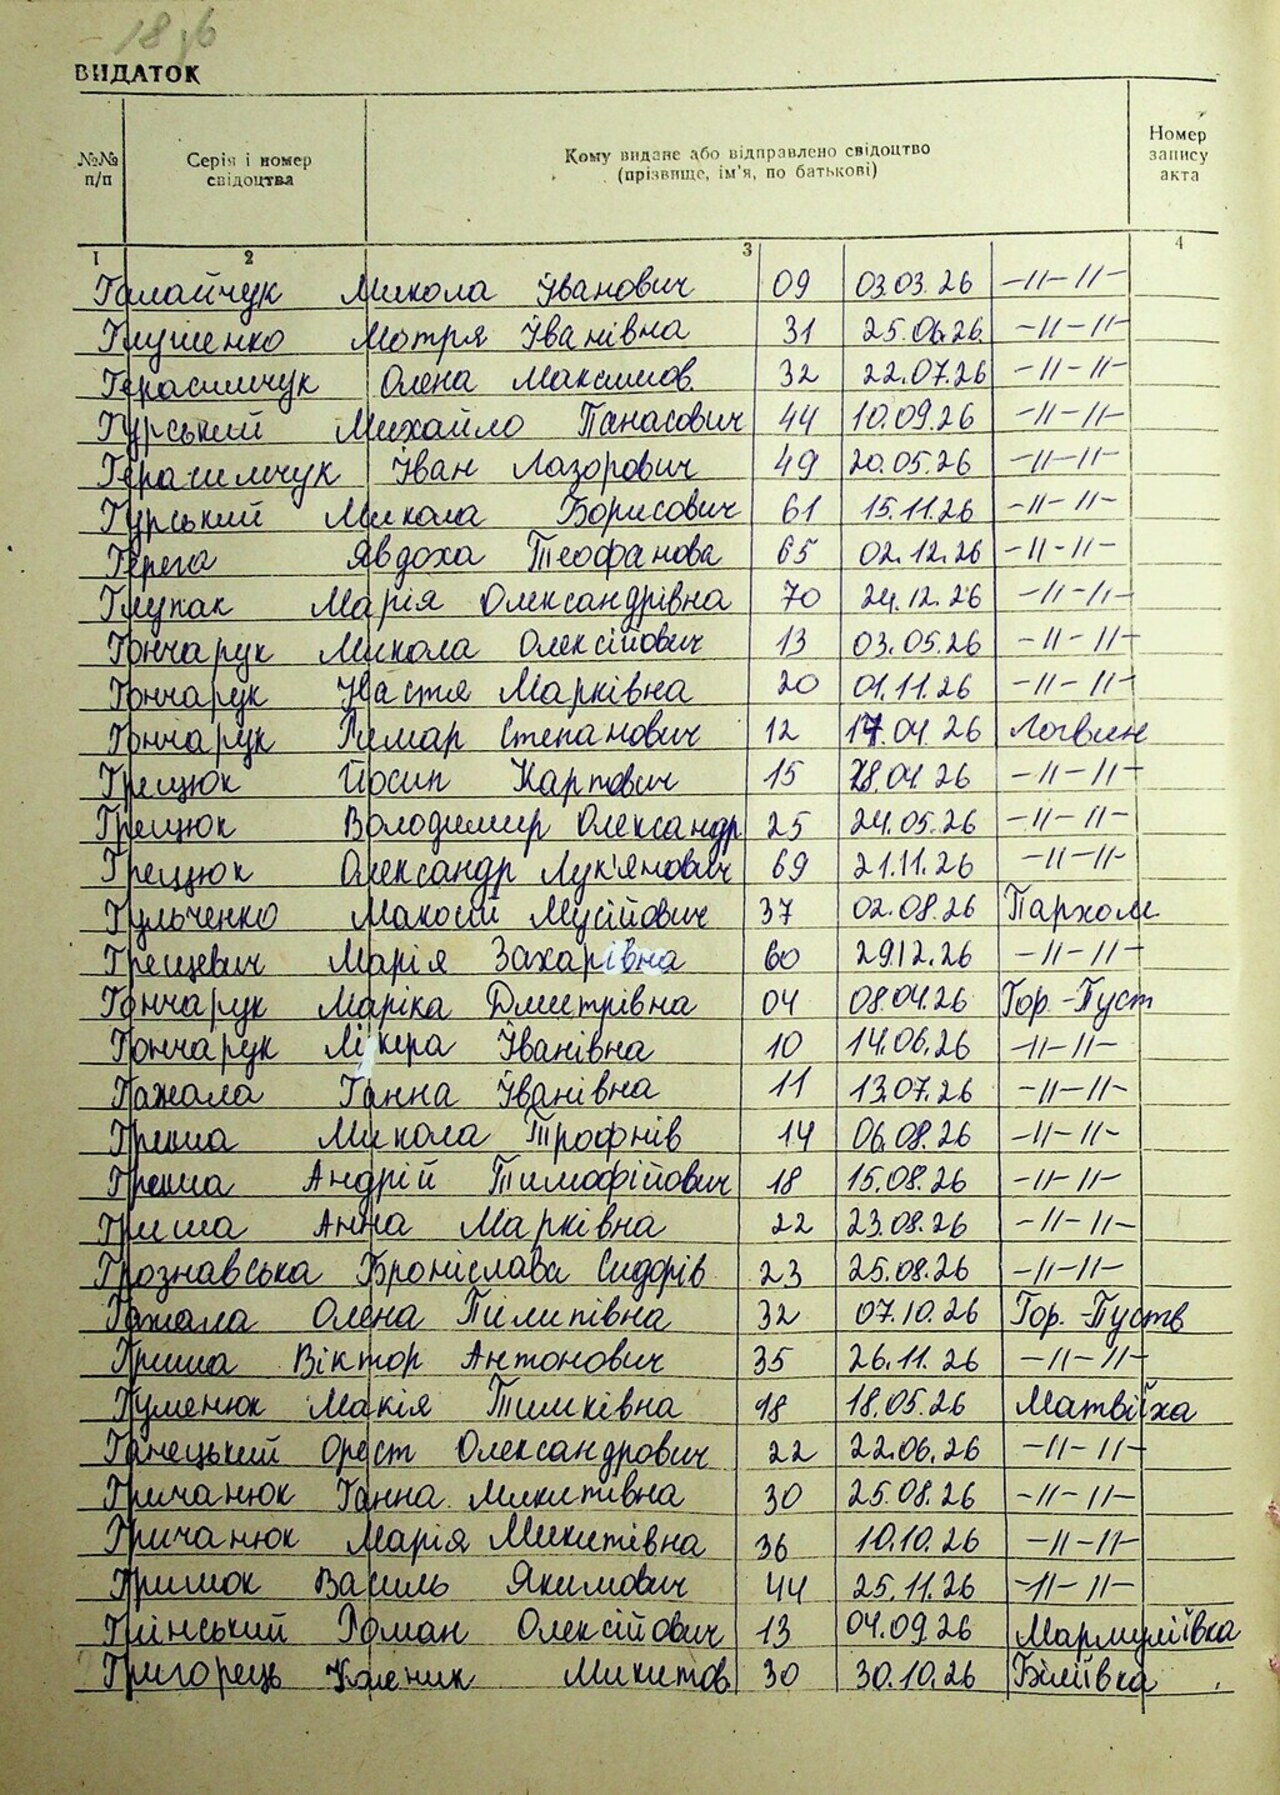 ВИДАТОК
№№ п/п
Серія і номер свідоцтва
Кому видане або відправлено свідоцтво (прізвище, ім'я, по батькові)
Номер запису акта
1 2 3 4
Галайчук Микола Іванович 09 03.03.26 -//-//-
Глушенко Мотря Іванівна 31 25.06.26. -//-//-
Герасимчук Олена Максимов. 32 22.07.26 -//-//-
Гурський Михайло Панасович 44 10.09.26 -//-//-
Герасимчук Іван Лазорович 49 20.05.26 -//-//-
Гурський Микола Борисович 61 15.11.26 -//-//-
Герега Явдоха Теофанова 65 02.12.26 -//-//-
Глупак Марія Олександрівна 70 24.12.26 -//-//-
Гончарук Микола Олексійович 13 03.05.26 -//-//-
Гончарук Настя Марківна 20 01.11.26 -//-//-
Гончарук Гимар Степанович 12 17.04.26 Логвин
Грецюк Йосип Карпович 15 28.04.26 -//-//-
Грецюк Володимир Олександр 25 24.05.26 -//-//-
Грецюк Олександр Лук'янович 69 21.11.26 -//-//-
Гульченко Макосій Мусійович 37 02.08.26 Пархом
Грещевич Марія Захарівна 60 29.12.26 -//-//-
Гончарук Маріка Дмитрівна 04 08.04.26 Гор.-Пуст
Гончарук Лікера Іванівна 10 14.06.26 -//-//-
Гажала Ганна Іванівна 11 13.07.26 -//-//-
Гриша Микола Трофнів 14 06.08.26 -//-//-
Греша Андрій Тимофійович 18 15.08.26 -//-//-
Гриша Анна Марківна 22 23.08.26 -//-//-
Грознавська Броніслава Сидорів 23 25.08.26 -//-//-
Гажала Олена Пилипівна 32 07.10.26 Гор.-Пуств
Гриша Віктор Антонович 35 26.11.26 -//-//-
Гуменюк Макія Тимківна 18 18.05.26 Матвіїха
Ганецький Орест Олександрович 22 22.06.26 -//-//-
Гричанюк Ганна Микитівна 30 25.08.26 -//-//-
Гричанюк Марія Микитівна 36 10.10.26 -//-//-
Гримюк Василь Якимович 44 25.11.26 -//-//-
Глінський Роман Олексійович 13 04.09.26 Мармуліївка
Григорець Каленик Микитов. 30 30.10.26 Біліївка